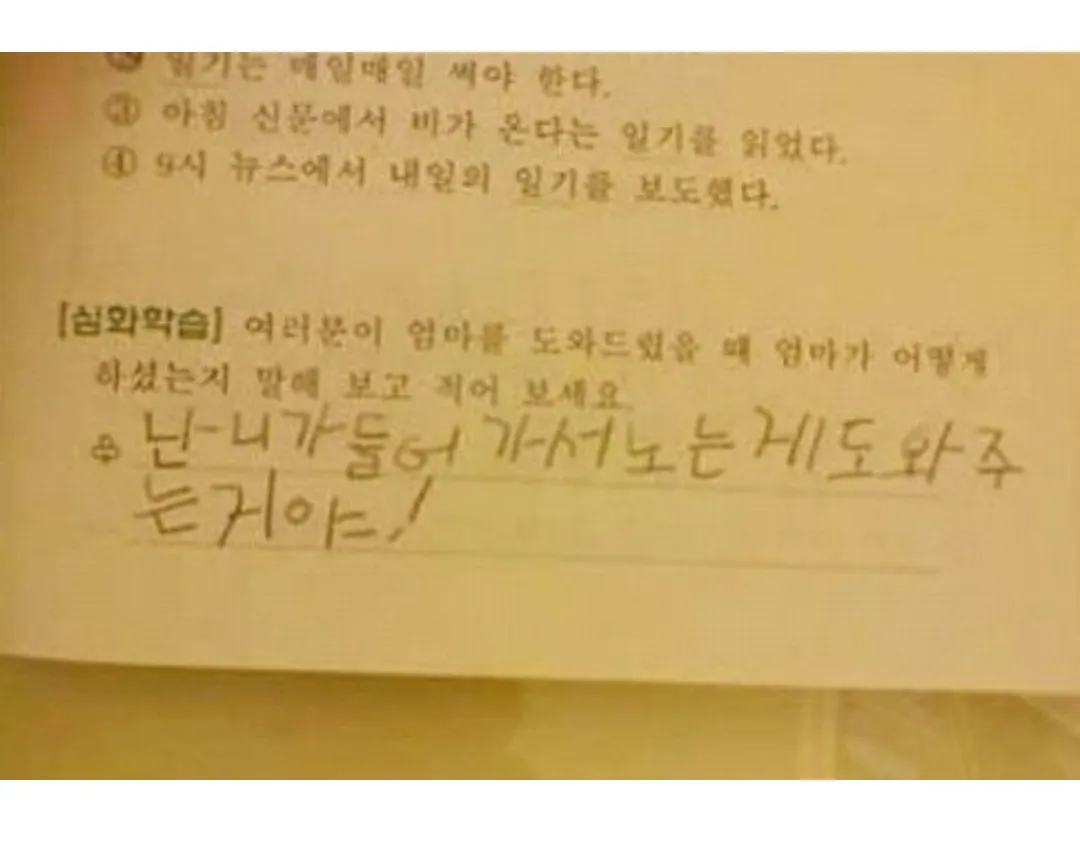 ② 일기는 매일매일 써야 한다.
③ 아침 신문에서 비가 온다는 일기를 읽었다.
④ 9시 뉴스에서 내일의 일기를 보도했다.
[심화학습] 여러분이 엄마를 도와드렸을 때 엄마가 어떻게
하셨는지 말해 보고 적어 보세요.
닌-니가들어 가서노는게도와주
는거야!